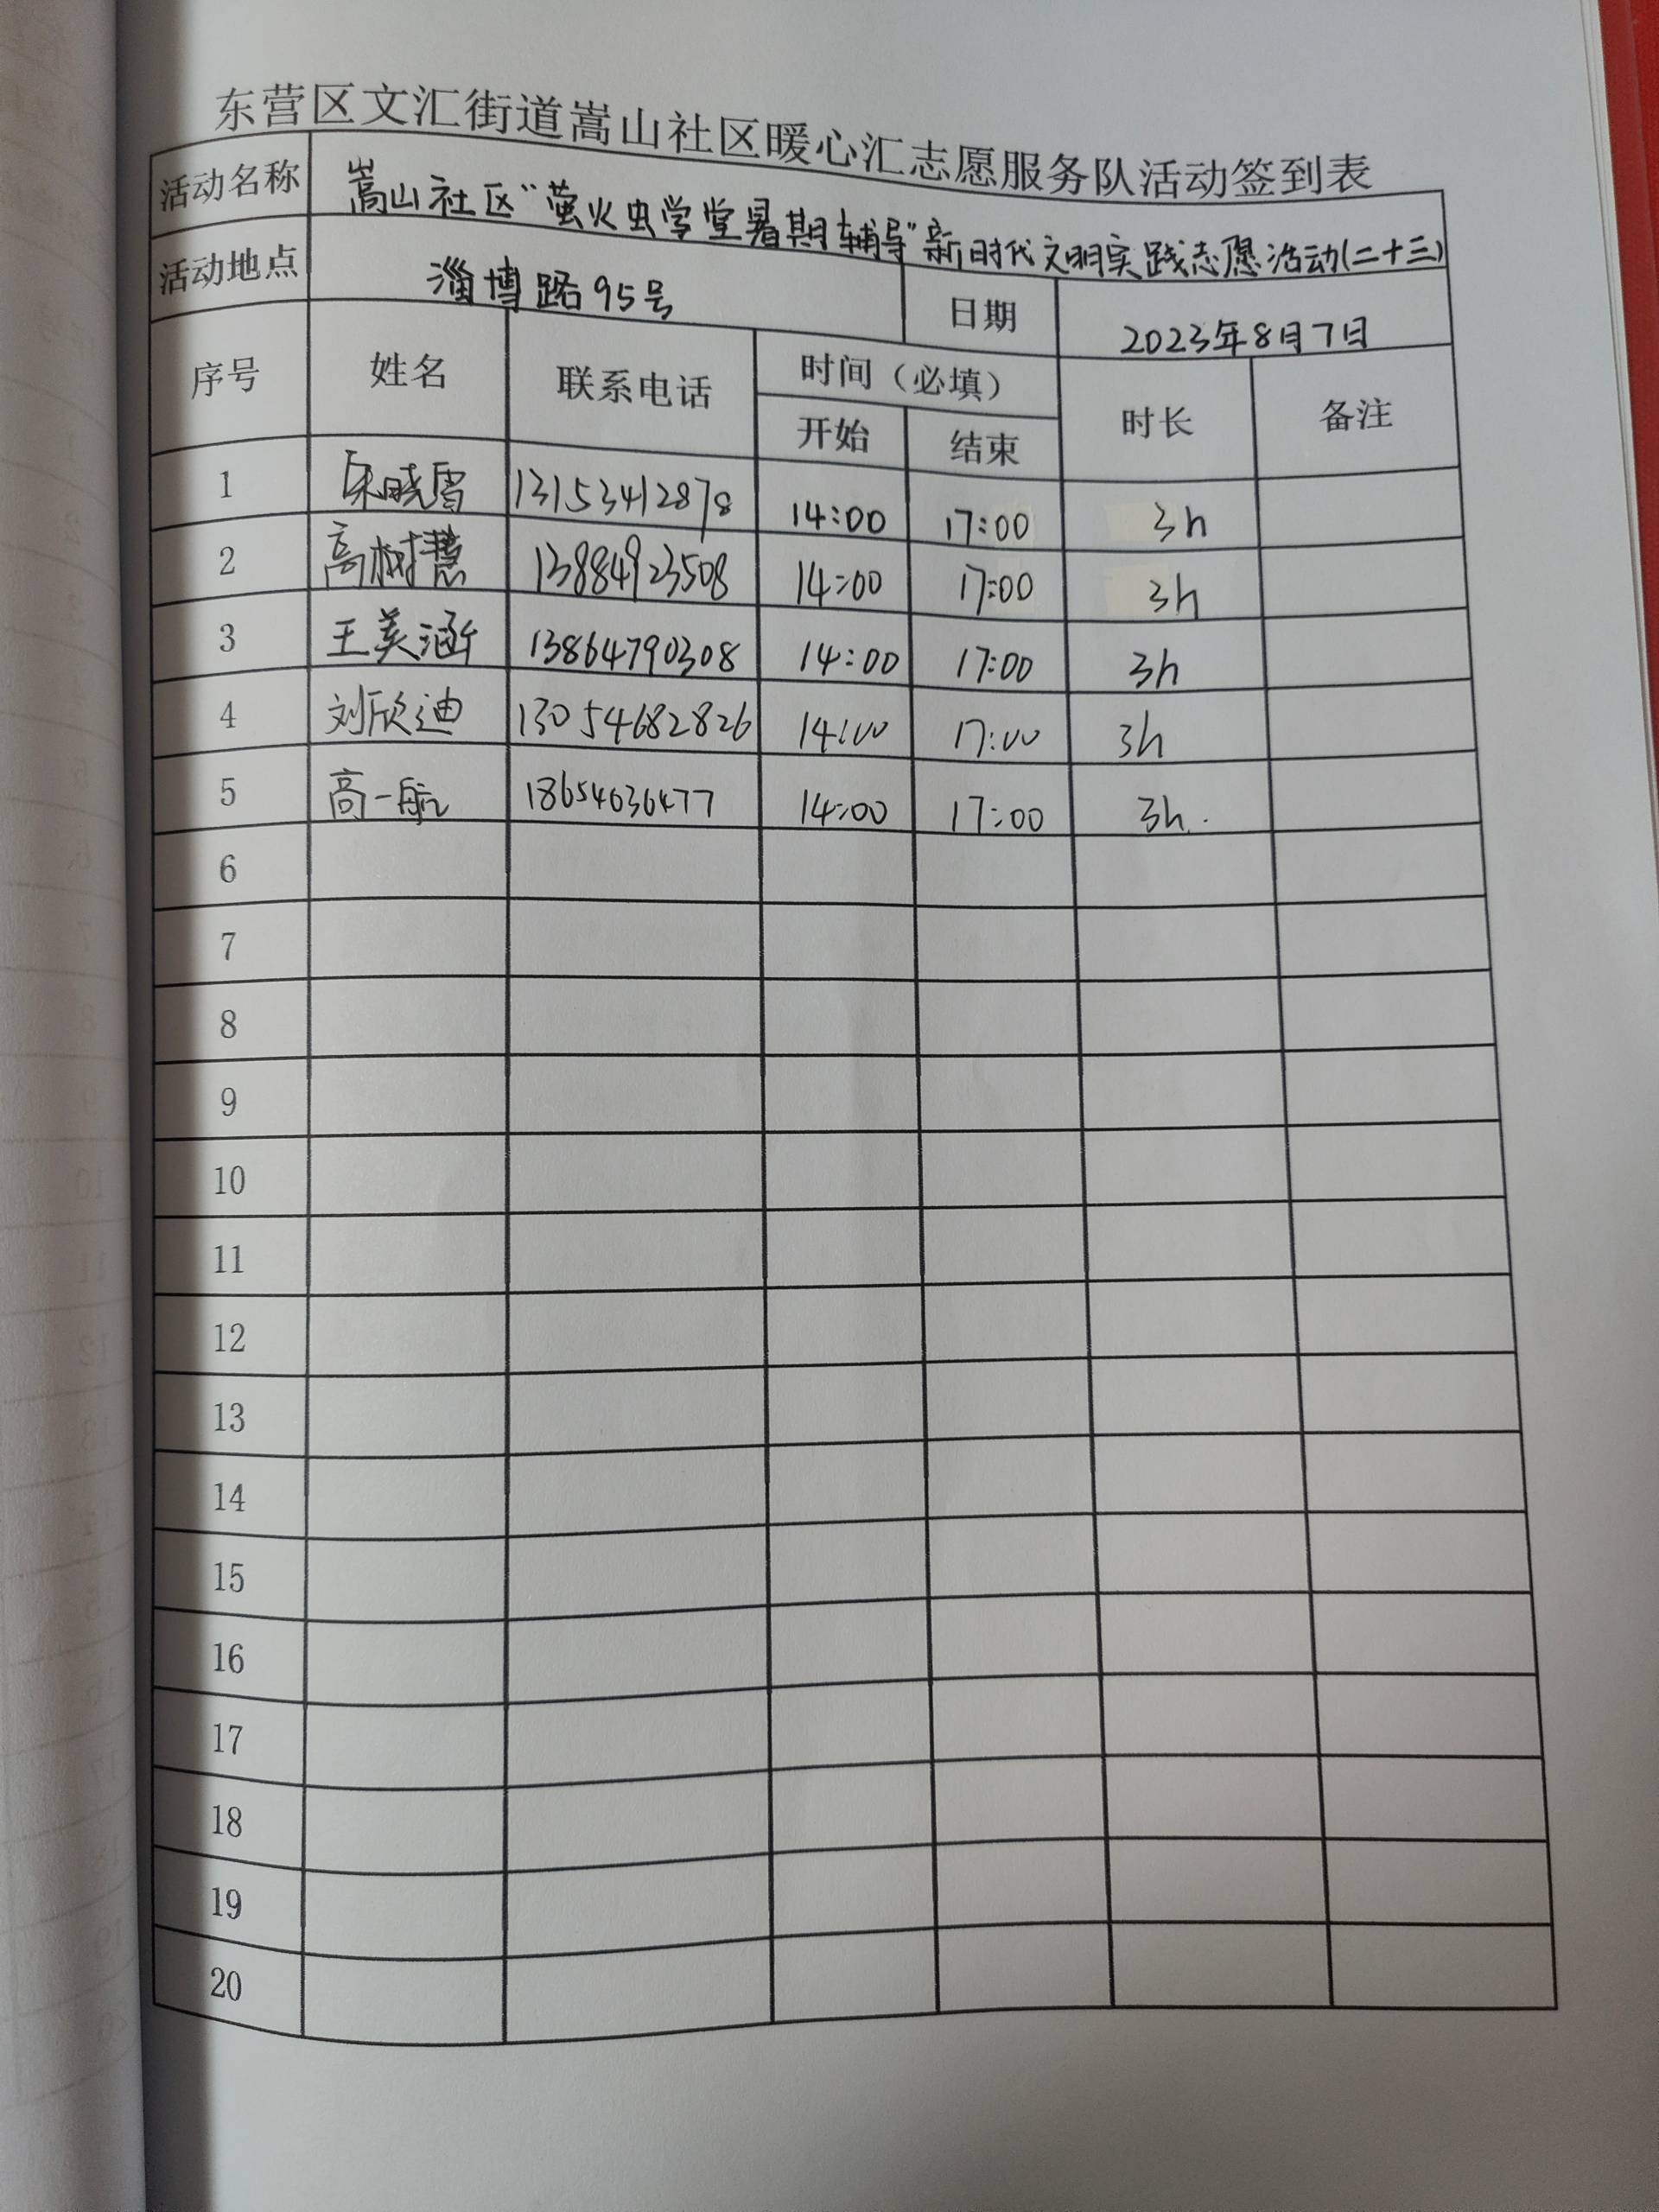 东营区文汇街道嵩山社区暖心汇志愿服务队活动签到表
活动名称 嵩山社区“萤火虫学堂暑期辅导”新时代文明实践志愿活动(二十三)
活动地点 淄博路95号 日期 2023年8月7日
序号 姓名 联系电话 时间（必填） 时长 备注
开始 结束
1 朱晓雪 13153412878 14:00 17:00 3h
2 高树慧 13884923508 14:00 17:00 3h
3 王美涵 13864790308 14:00 17:00 3h
4 刘欣迪 13054682826 14:00 17:00 3h
5 高一航 18654636477 14:00 17:00 3h.
6
7
8
9
10
11
12
13
14
15
16
17
18
19
20